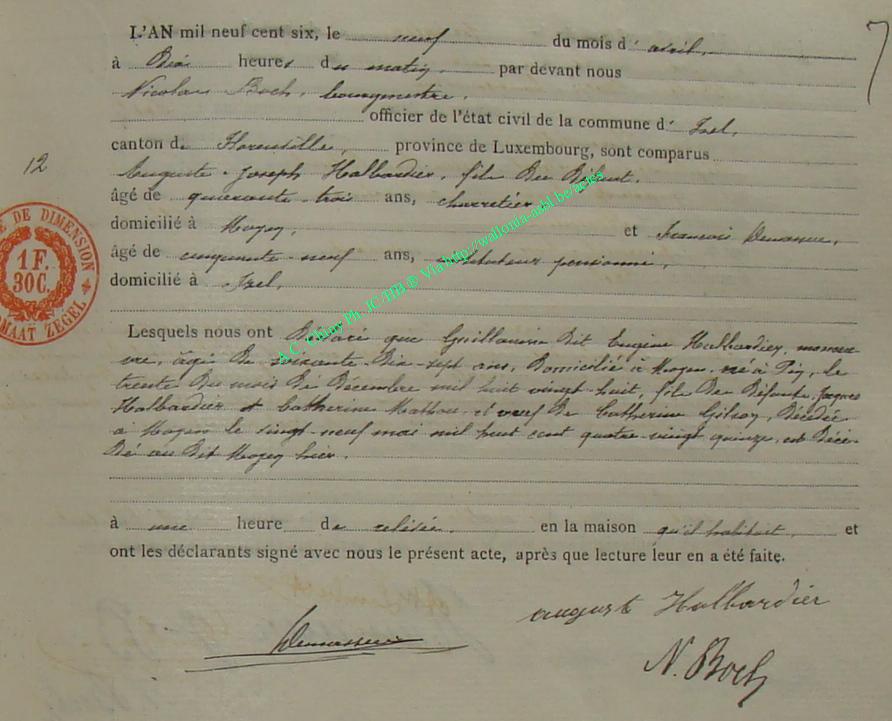 L'AN mil neuf cent six, le neuf du mois d'avril,
à Dix heures du matin, par devant nous
Nicolas Boch, bourgmestre,
officier de l'état civil de la commune d'Izel,
canton de Florenville, province de Luxembourg, sont comparus
12
Auguste Joseph Halbardier, fils du Défunt,
âgé de quarante trois ans, charretier,
domicilié à Moyen, et François Demasure,
âgé de cinquante-neuf ans, instituteur pensionné,
domicilié à Izel,
DE DIMENSION
1 F.
30 C.
ZEGEL
A.C. Chiny Ph. JC/HB ® Via http://wallonia-asbl.be/actes
Lesquels nous ont Déclaré que Guillaume dit Eugène Halbardier, manoeu-
vre, âgé de soixante Dix-sept ans, Domicilié à Moyen, né à Pin, le
trente du mois de Décembre mil huit vingt-huit, fils de Défunts, Jacques
Halbardier et Catherine et veuf de Catherine Gilson, Décédée
à Moyen le vingt-neuf mai mil huit cent quatre-vingt quinze, est Décé-
dé au Dit Moyen hier,
à une heure de relevée, en la maison qu'il habitait, et
ont les déclarants signé avec nous le présent acte, après que lecture leur en a été faite.
auguste Halbardier
N. Boch